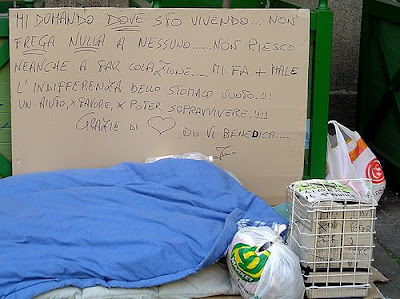 MI DOMANDO DOVE STO VIVENDO.... NON
FREGA NULLA A NESSUNO...... NON RIESCO
NEANCHE A FAR COLAZIONE.... MI FA + MALE
L'INDIFFERENZA DELLO STOMACO VUOTO.!!!
UN AIUTO, X FAVORE, X POTER SOPRAVVIVERE.!!!!
GRAZIE DI ♡ .. DIO VI BENEDICA....